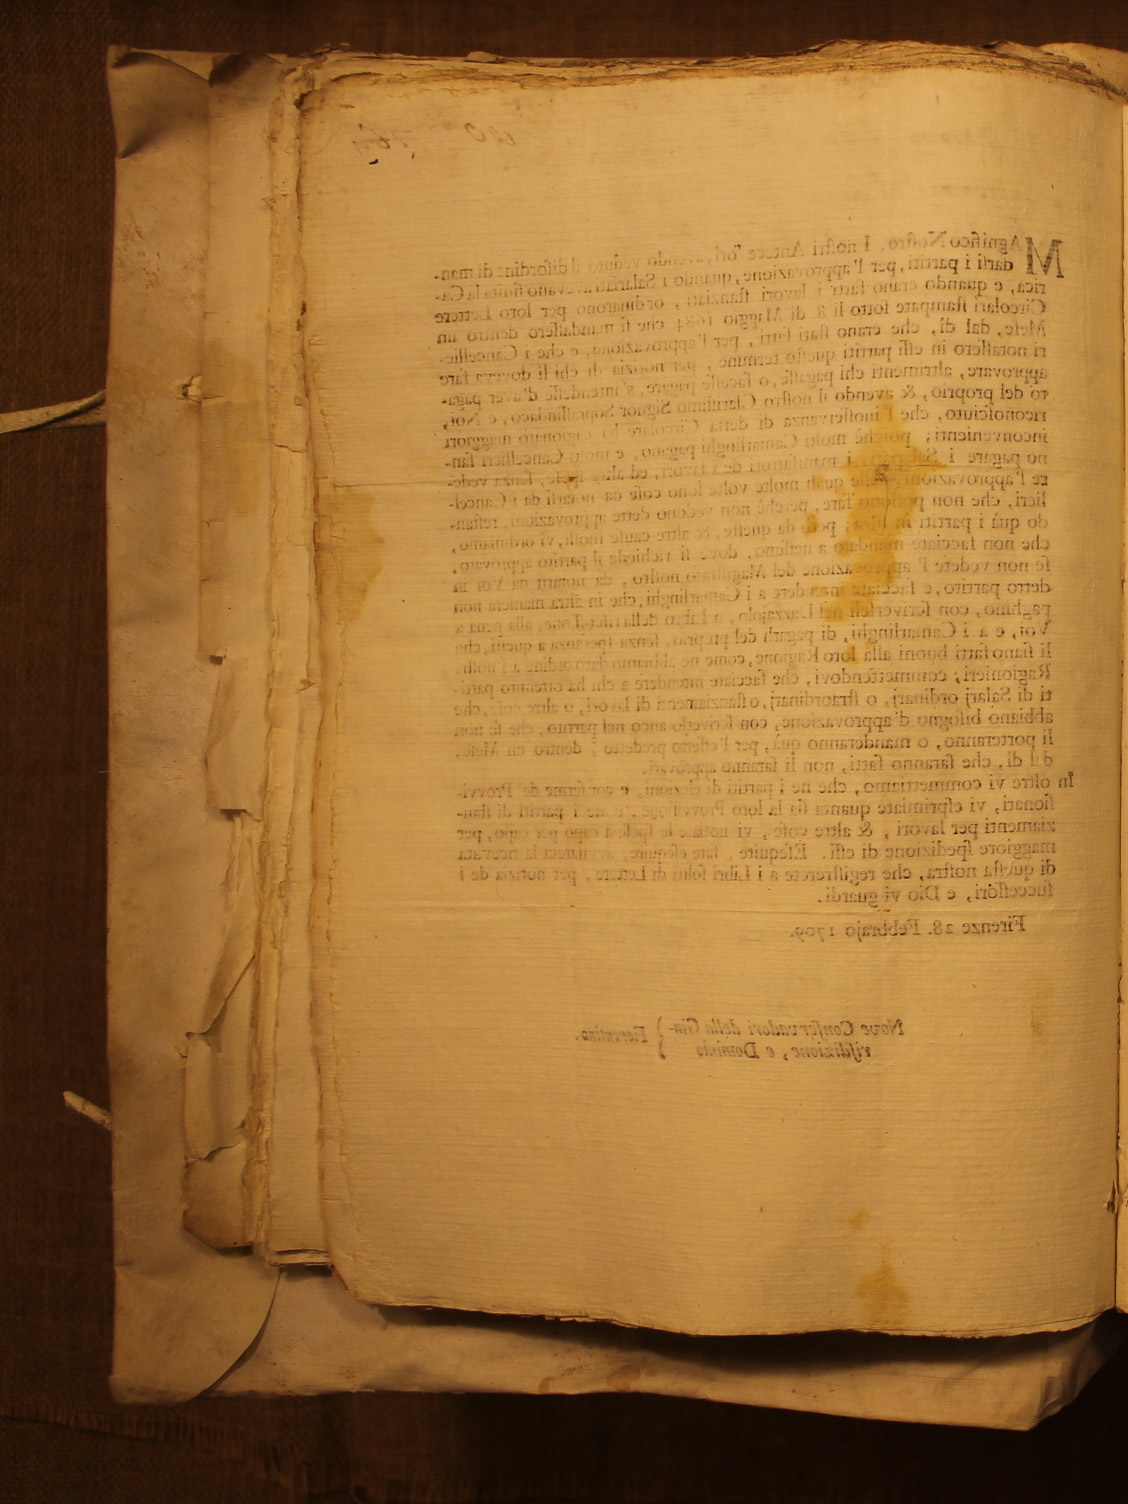 MAgnifico Nostro. I nostri Antecessori, avendo veduto il disordine di man-
darsi i partiti, per l'approvazione, quando i Salariati avevano finita la Ca-
rica, e quando erano fatti i lavori stanziati, ordinarono per loro Lettere
Circolari stampate sotto li 8. di Maggio 1684 che si mandassero dentro un
Mese, dal dì, che erano stati fatti, per l'approvazione, e che i Cancellie-
ri notassero in essi partiti questo termine, per notizia di chi li doveva fare
approvare, altrimenti chi pagasse, o facesse pagare, s'intendesse d'aver paga-
to del proprio, & avendo il nostro Clarissimo Signor Soprassindaco, e Noi,
riconosciuto, che l'inosservanza di detta Circolare ha cagionato maggiori
inconvenienti; poichè molti Camarlinghi pagano, e molti Cancellieri fan-
no pagare i Salariati, i manifattori de i lavori, ed altre spese, senza vede-
re l'approvazioni, nelle quali molte volte sono cose da notarsi da i Cancel-
lieri, che non possono fare, perchè non vedono dette approvazioni, restan-
do quà i partiti in Filza; però da queste, & altre cause mossi, vi ordiniamo,
che non facciate mandato a nessuno, dove si richieda il partito approvato,
se non vedete l'approvazione del Magistrato nostro, da notarsi da Voi in
detto partito, e facciate intendere a i Camarlinghi, che in altra maniera non
paghino, con scriverlesi nel Dazzajolo, o Libro della riscossione, alla pena a
Voi, e a i Camarlinghi, di pagarli del proprio, senza speranza a questi, che
li siano fatti buoni alla loro Ragione, come ne abbiamo dato ordine a i nostri
Ragionieri; commettendovi, che facciate intendere a chi ha ottenuto parti-
ti di Salarj ordinarj, o straordinarj, o stanziamenti di lavori, o altre cose, che
abbiano bisogno d'approvazione, con scriverlo anco nel partito, che se non
li porteranno, o manderanno quà, per l'effetto predetto; dentro un Mese,
dal dì, che saranno fatti, non li saranno approvati.
In oltre vi commettiamo, che ne i partiti di elezioni, e conferme de' Provvi-
sionati, vi esprimiate quanta sia la loro Provvisione, e ne i partiti di stan-
ziamenti per lavori, & altre cose, vi notiate le spese a capo per capo, per
maggiore spedizione di essi. Eseguite, fate eseguire, avvisateci la ricevuta
di questa nostra, che registrerete a i Libri soliti di Lettere, per notizia de i
successori, e Dio vi guardi.
Firenze 28. Febbrajo 1709.
Nove Conservadori della Giu- } Fiorentino.
risdizione, e Dominio